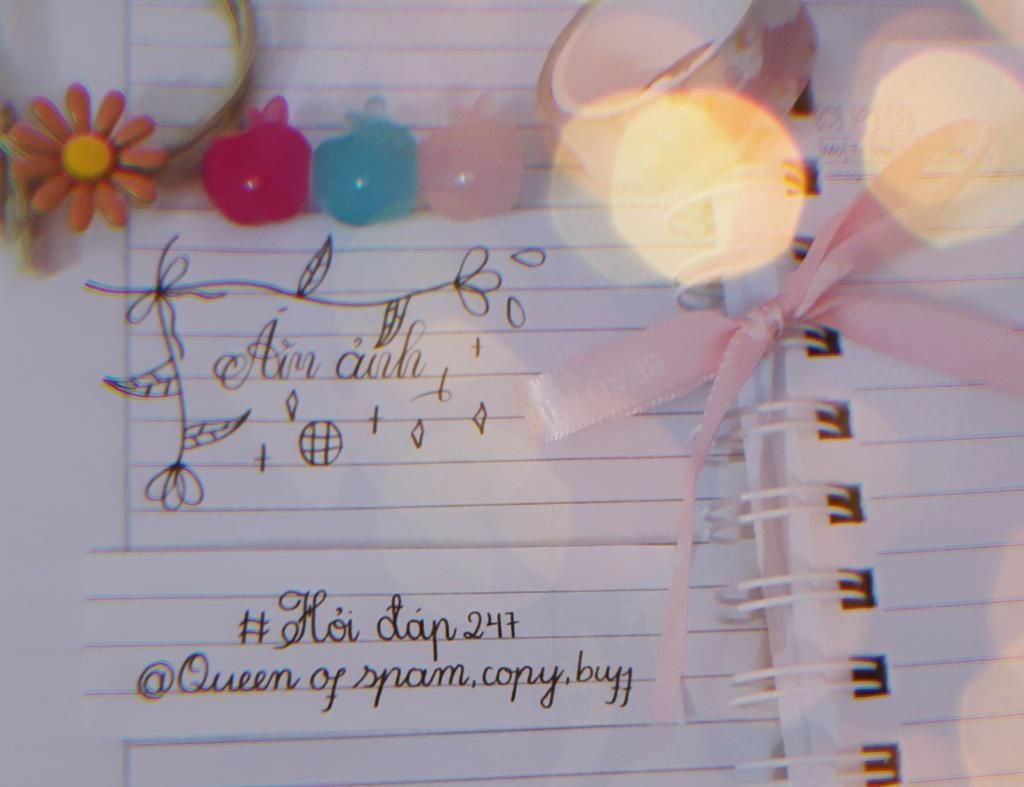 Ẩn ảnh
#Hỏi đáp 247
@Queen of spam,copy,buff
BEAUT